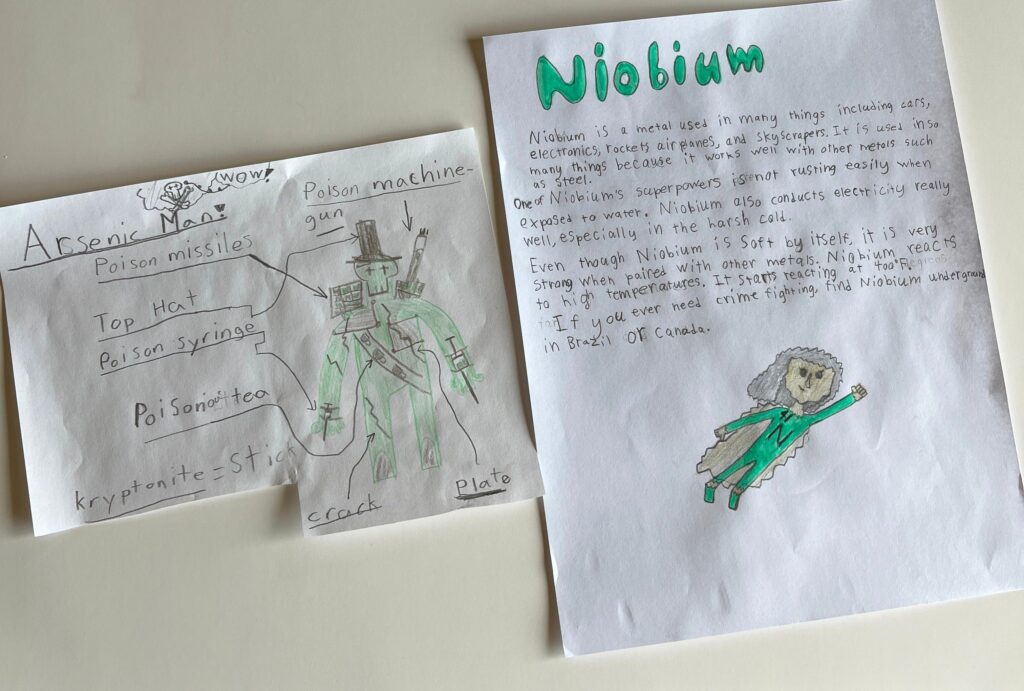 wow!
Arsenic Man!
Poison machine-
gun
Poison missiles
Top Hat
Poison syringe
Poison tea
kryptonite = Stick
crack
Plate
Niobium
Niobium is a metal used in many things including cars,
electronics, rockets airplanes, and skyscrapers. It is used in so
many things because it works well with other metals such
as steel.
One of Niobium's superpowers is not rusting easily when
exposed to water. Niobium also conducts electricity really
well, especially in the harsh cold.
Even though Niobium is soft by itself, it is very
strong when paired with other metals. Niobium reacts
to high temperatures. It starts reacting at 400°F
If you ever need crime fighting, find Niobium underground
in Brazil or Canada.
N